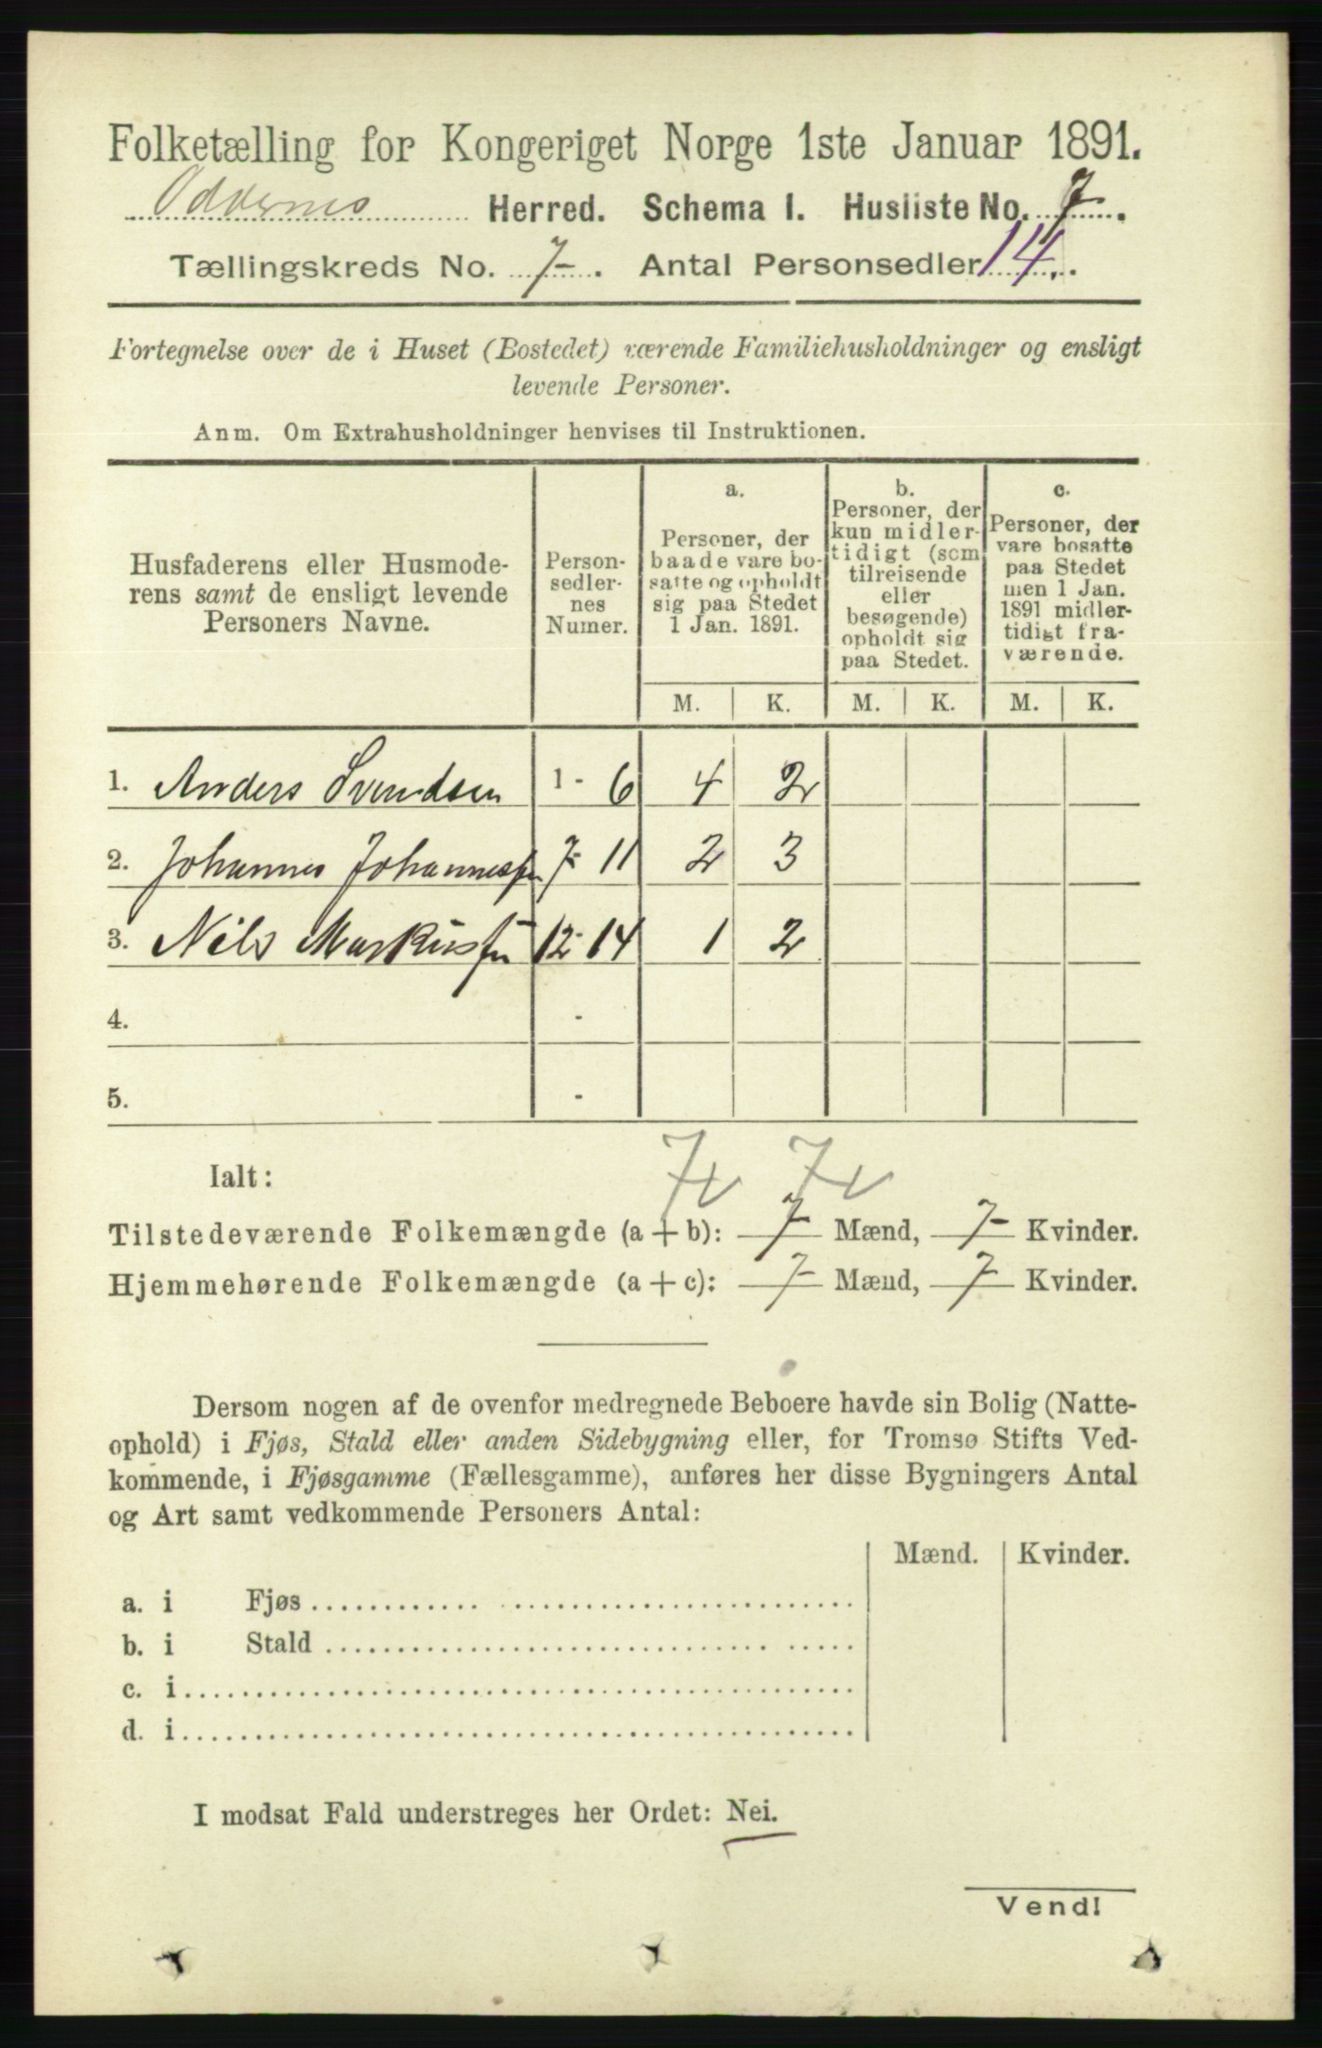 Folketælling for Kongeriget Norge 1ste Januar 1891.
Oddernes Herred. Schema I. Husliste No. 7.
Tællingskreds No. 7. Antal Personsedler 14.
Fortegnelse over de i Huset (Bostedet) værende Familiehusholdninger og ensligt
levende Personer.
Anm. Om Extrahusholdninger henvises til Instruktionen.
Husfaderens eller Husmode-
rens samt de ensligt levende
Personers Navne.
Person-
sedler-
nes
Numer.
a.
Personer, der
baade vare bo-
satte og opholdt
sig paa Stedet
1 Jan. 1891.
b.
Personer, der
kun midler-
tidigt (som
tilreisende
eller
besøgende)
opholdt sig
paa Stedet.
c.
Personer, der
vare bosatte
paa Stedet
men 1 Jan.
1891 midler-
tidigt fra-
værende.
M. K. M. K. M. K.
1. Anders Svendsen 1 - 6 4 2
2. Johannes Johannessen 7 - 11 2 3
3. Nils Markussen 12 - 14 1 2
4. -
5. -
Ialt: 7 7
Tilstedeværende Folkemængde (a + b): 7 Mænd, 7 Kvinder.
Hjemmehørende Folkemængde (a + c): 7 Mænd, 7 Kvinder.
Dersom nogen af de ovenfor medregnede Beboere havde sin Bolig (Natte-
ophold) i Fjøs, Stald eller anden Sidebygning eller, for Tromsø Stifts Ved-
kommende, i Fjøsgamme (Fællesgamme), anføres her disse Bygningers Antal
og Art samt vedkommende Personers Antal:
Mænd. Kvinder.
a. i Fjøs
b. i Stald
c. i
d. i
I modsat Fald understreges her Ordet: Nei.
Vend!